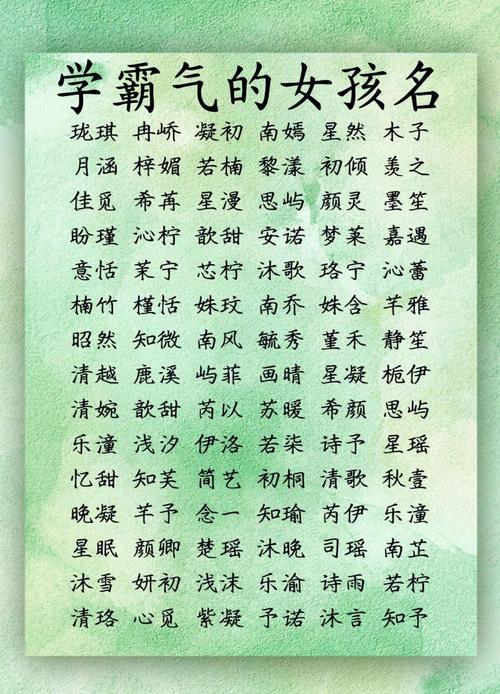 学霸气的女孩名
珑琪 冉峤 凝初 南嫣 星然 木子
月涵 梓媚 若楠 黎漾 初倾 羡之
佳觅 希苒 星漫 思屿 颜灵 墨笙
盼瑾 沁柠 歆甜 安诺 梦莱 嘉遇
意恬 茉宁 芯柠 沐歌 珞宁 沁蕾
楠竹 槿恬 姝玟 南乔 姝含 芊雅
昭然 知微 南风 毓秀 堇禾 静笙
清越 鹿溪 屿菲 画晴 星凝 栀伊
清婉 歆甜 芮以 苏暖 希颜 思屿
乐潼 浅汐 伊洛 若柒 诗予 星瑶
忆甜 知芙 简艺 初桐 清歌 秋壹
晚凝 芊予 念一 知瑜 芮伊 乐潼
星眠 颜卿 楚瑶 沐晚 司瑶 南芷
沐雪 妍初 浅沫 乐渝 诗雨 若柠
清珞 心觅 紫凝 予诺 沐言 知予